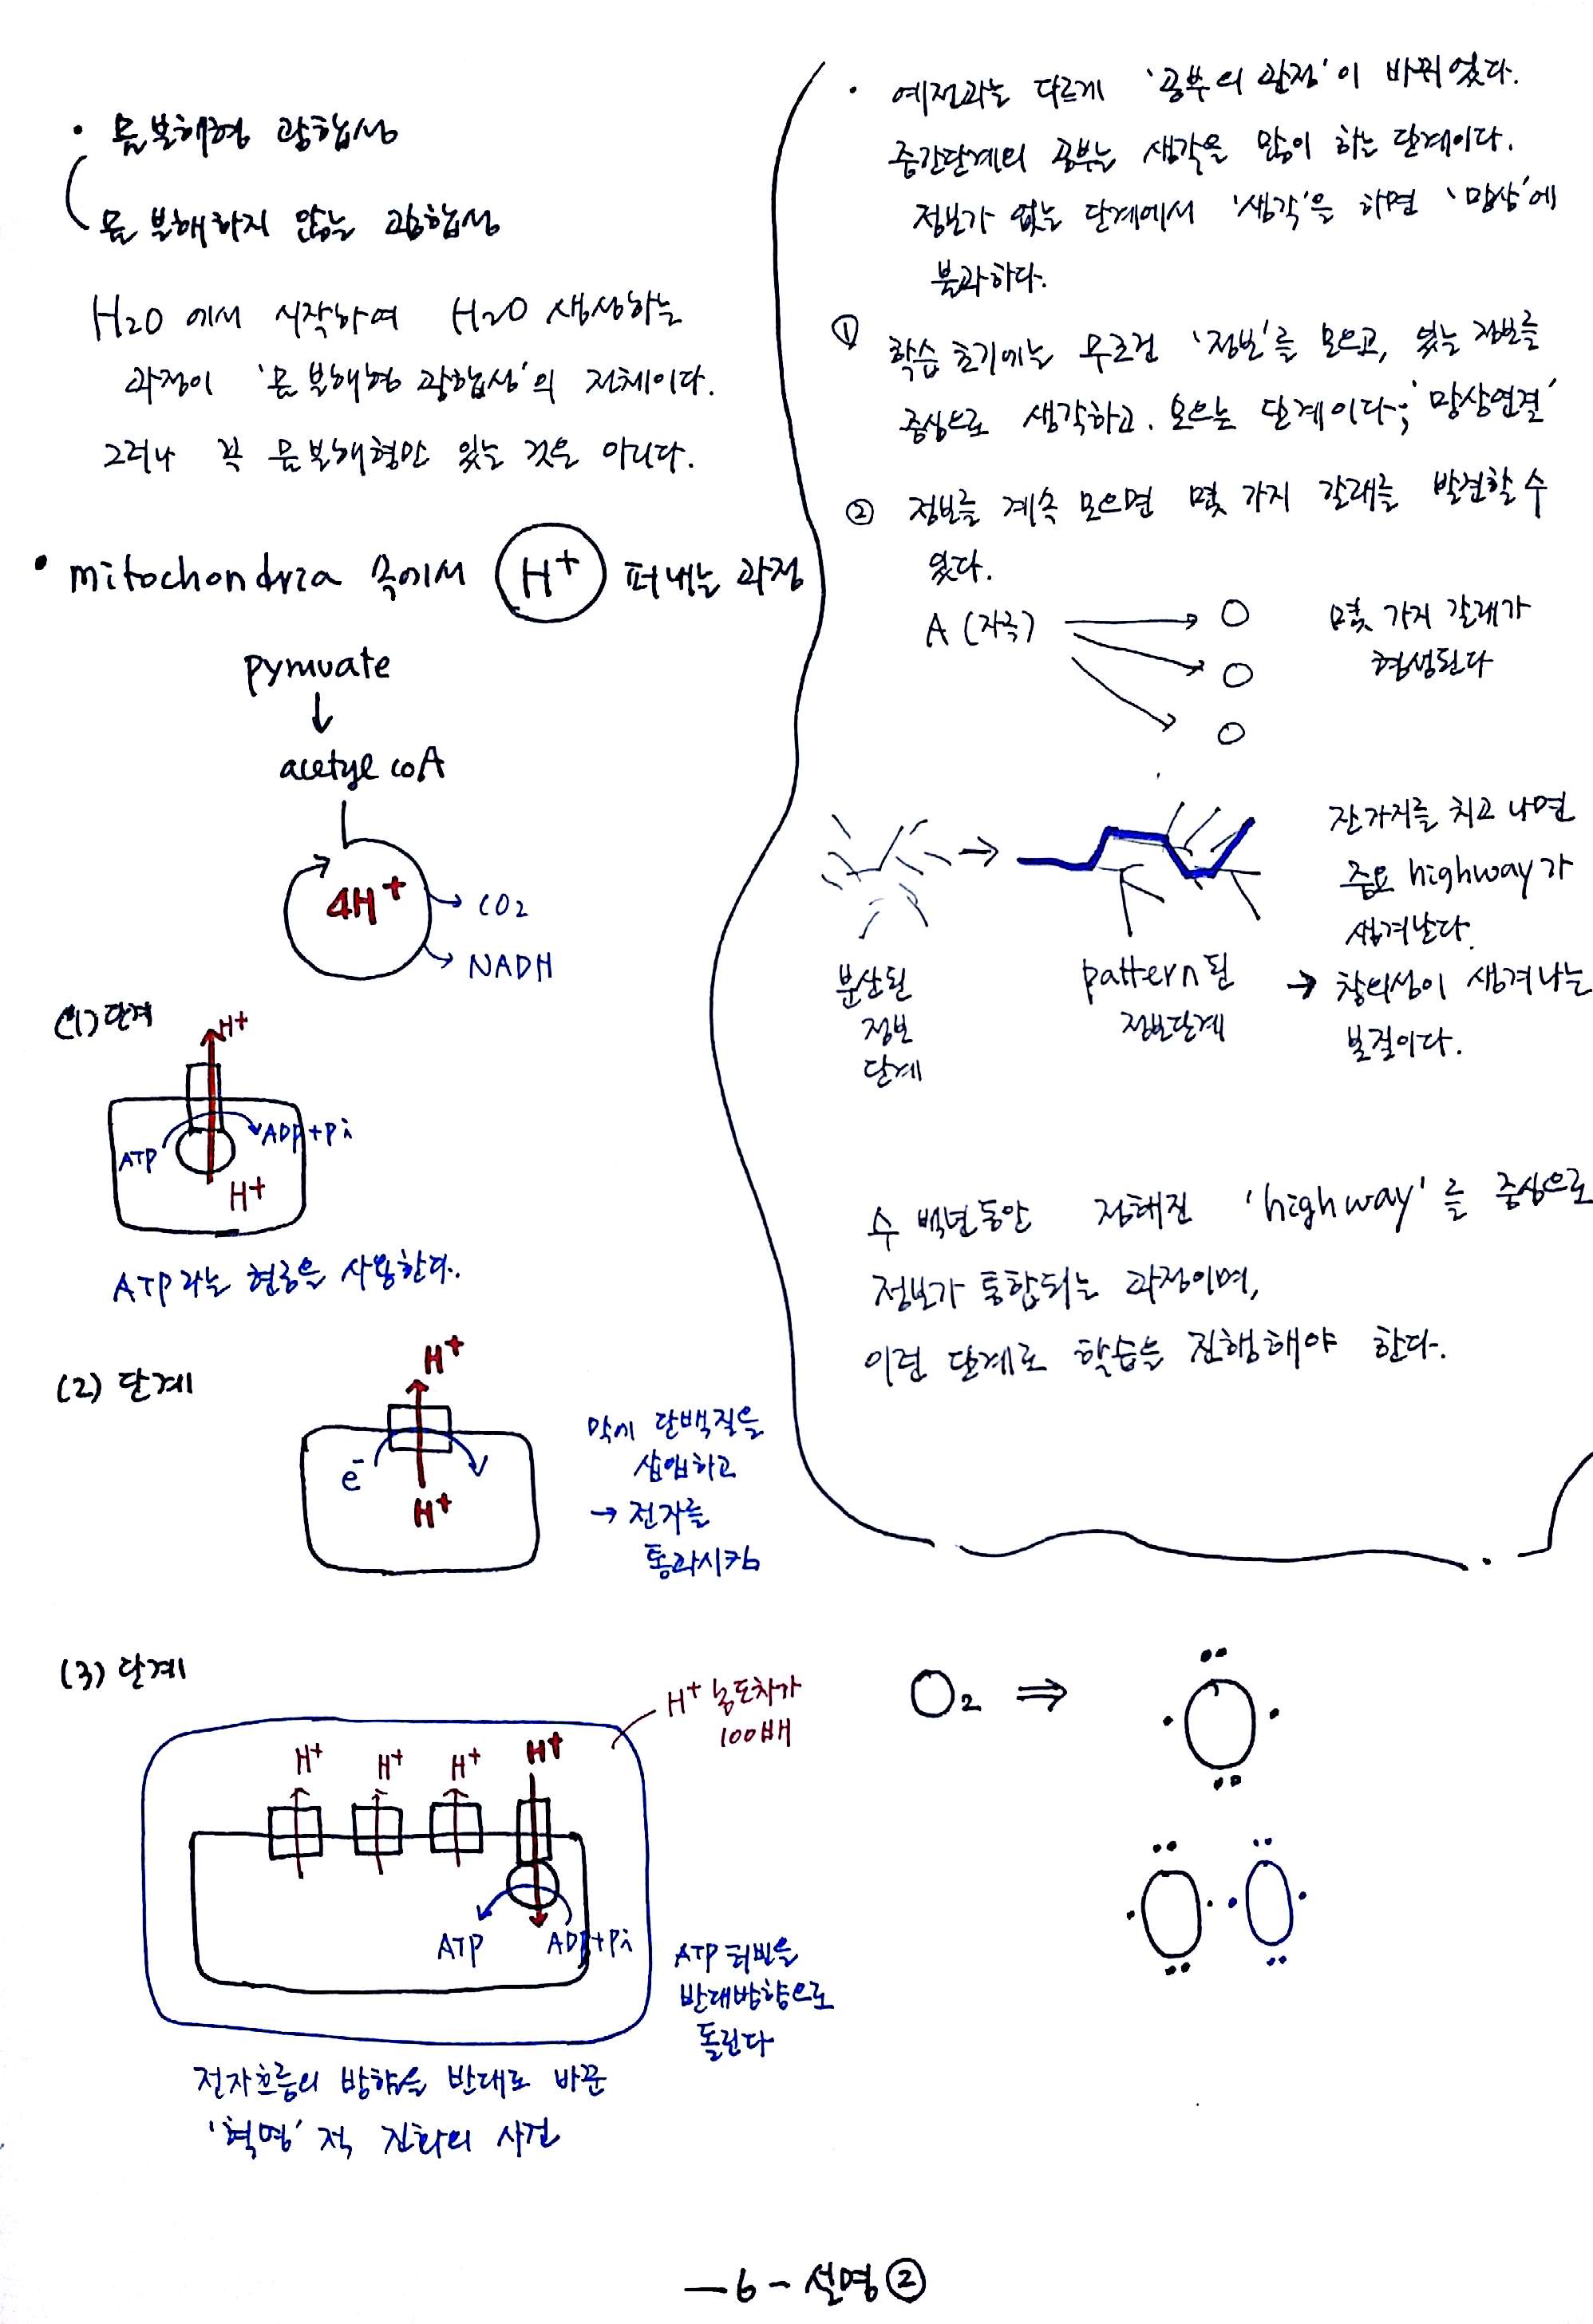 · 물분해형 광합성
물 분해하지 않는 광합성
H2O 에서 시작하여 H2O 생성하는
과정이 '물 분해형 광합성'의 전체이다.
그러나 꼭 물분해형만 있는 것은 아니다.
· mitochondria 속에서 H+ 퍼내는 과정
pyruvate
↓
acetyl coA
4H+
→ CO2
→ NADH
(1) 단계
H+
ATP
ADP+Pi
H+
ATP라는 현금을 사용한다.
(2) 단계
H+
e-
H+
막에 단백질을
삽입하고
→ 전자를
통과시킴
(3) 단계
H+ 농도차가
100배
H+ H+ H+ H+
ATP ADP+Pi
ATP 터빈을
반대방향으로
돌린다
전자흐름의 방향을 반대로 바꾼
'혁명'적 진화의 사건
· 예전과는 다르게 '공부의 관점'이 바뀌었다.
중간단계의 공부는 생각을 많이 하는 단계이다.
정보가 없는 단계에서 '생각'을 하면 '망상'에
불과하다.
① 학습 초기에는 무조건 '정보'를 모으고, 있는 정보를
중심으로 생각하고. 모으는 단계이다; '망상연결'
② 정보를 계속 모으면 몇 가지 갈래를 발견할 수
있다.
A (자극)
몇 가지 갈래가
형성된다
→
잔가지를 치고 나면
주요 highway가
생겨난다.
분산된
정보
단계
pattern된
정보단계
→ 창의성이 생겨나는
본질이다.
수 백년동안 정해진 'highway'를 중심으로
정보가 통합되는 과정이며,
이런 단계로 학습을 진행해야 한다.
O2 ⇒
—6— 설명②